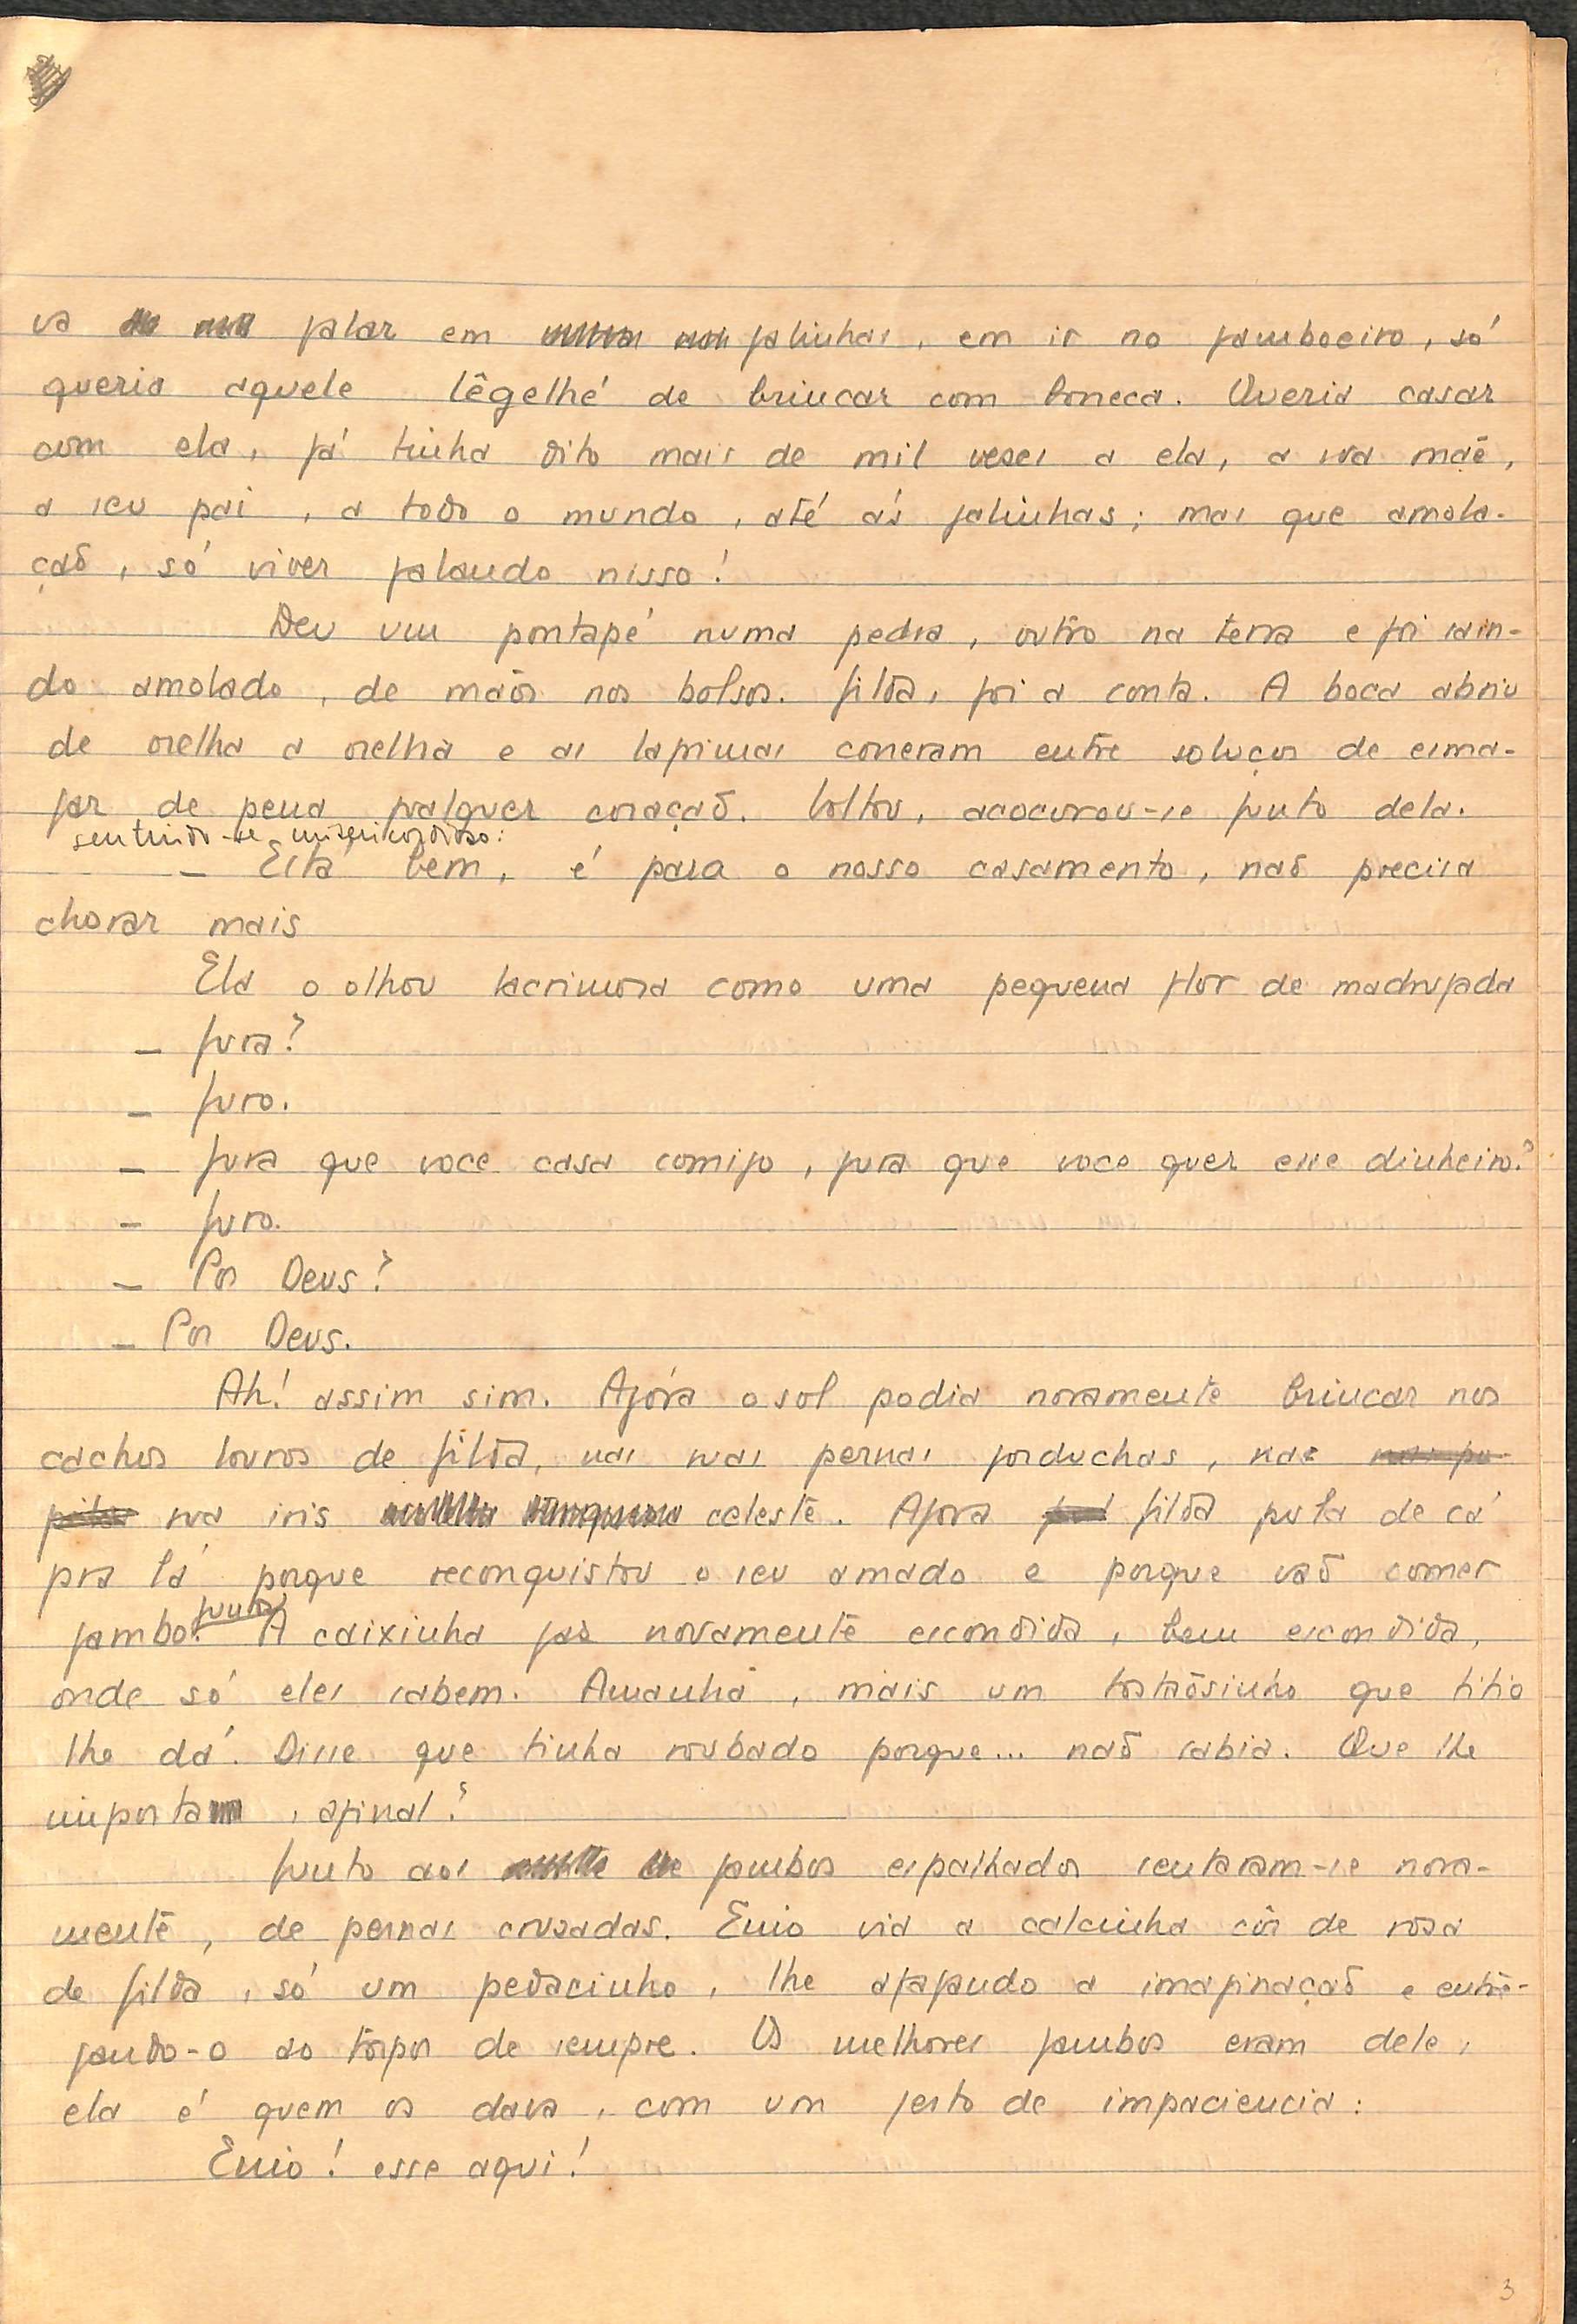 va falar em galinhas, em ir no jamboeiro, só
queria aquele lêgelhé de brincar com boneca. Queria casar
com ela, já tinha dito mais de mil vezes a ela, a sua mãe,
a seu pai, a todo o mundo, até ás galinhas; mas que amola-
ção, só viver falando nisso!
Deu um pontapé numa pedra, outro na terra e foi sain-
do amolado, de mãos nos bolsos. Gilda, foi a conta. A boca abriu
de orelha a orelha e as lagrimas correram entre soluços de esma-
gar de pena qualquer coração. Voltou, acocorou-se junto dela.
sentindo-se misericordioso:
— Está bem, é para o nosso casamento, não precisa
chorar mais
Ela o olhou lacrimosa como uma pequena flor de madrugada
— Jura?
— Juro.
— Jura que voce casa comigo, jura que voce quer esse dinheiro?
— Juro.
— Por Deus?
— Por Deus.
Ah! assim sim. Agóra o sol podia novamente brincar nos
cachos louros de Gilda, nas suas pernas gorduchas, nas
sua iris celeste. Agora Gilda pula de cá
pra lá porque reconquistou o seu amado e porque vão comer
juntos
jambo. A caixinha jaz novamente escondida, bem escondida,
onde só eles sabem. Amanhã, mais um tostãosinho que titio
lhe dá. Disse que tinha roubado porque... não sabia. Que lhe
importa, afinal?
Junto aos jambos espalhados sentaram-se nova-
mente, de pernas cruzadas. Enio via a calcinha côr de rosa
de Gilda, só um pedacinho, lhe afagando a imaginação e entre-
gando-o ao torpor de sempre. Os melhores jambos eram dele,
ela é quem os dava, com um gesto de impaciencia:
Enio! esse aqui!
3